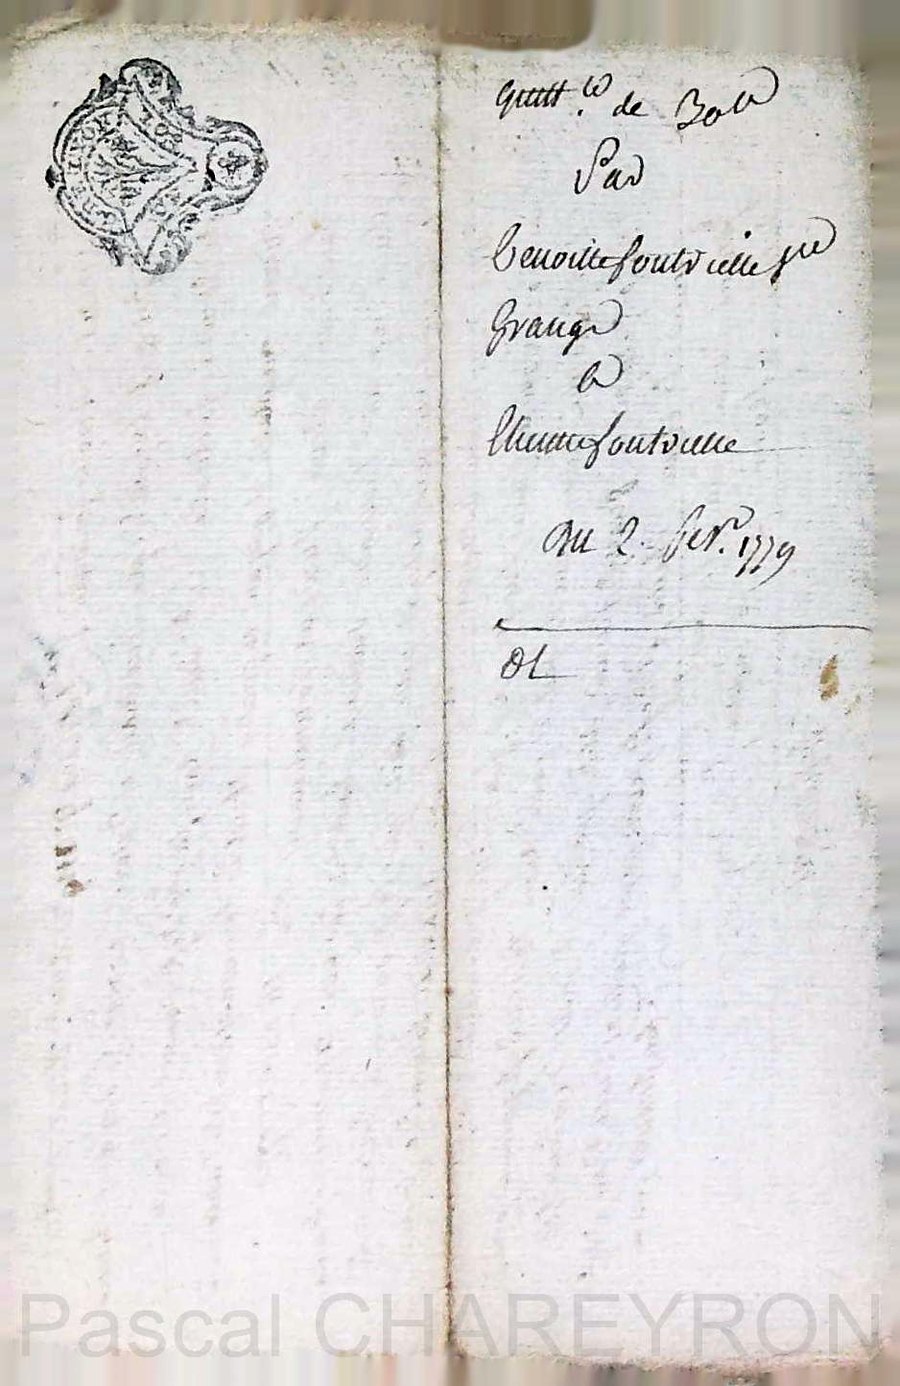 quitt.ce de 30 ll
Par
benoitte fontvieille fme
Grange
a
Claude fontvielle
du 2 fevr. 1779
Pascal CHAREYRON